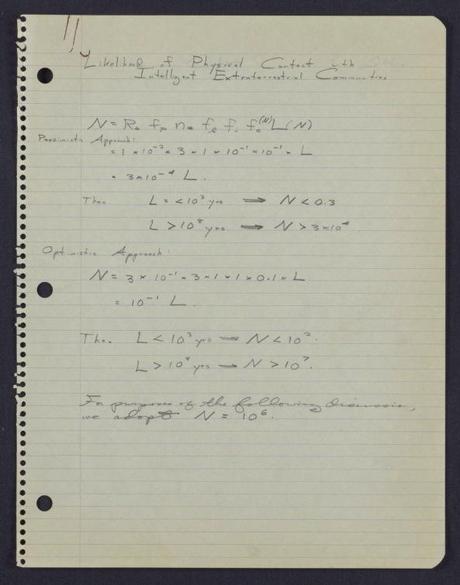 11
Likelihood of Physical Contact with
Intelligent Extraterrestrial Communities
N = R* fp ne fl fi fc(N) L(N)
Pessimistic Approach:
= 1 × 10⁻² × 3 × 1 × 10⁻¹ × 10⁻¹ × L
= 3×10⁻⁴ L.
Then L = <10³ yrs ⟹ N < 0.3
L > 10⁸ yrs ⟹ N > 3×10⁴
Optimistic Approach:
N = 3 × 10⁻¹ × 3 × 1 × 1 × 0.1 × L
= 10⁻¹ L.
Then L < 10³ yrs → N < 10².
L > 10⁸ yrs → N > 10⁷.
For purposes of the following discussion,
we adopt N = 10⁶.